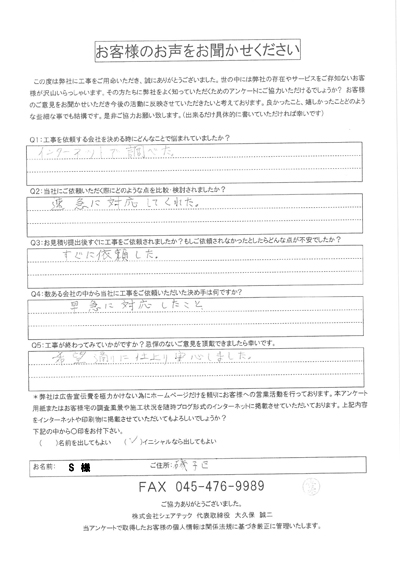 お客様のお声をお聞かせください
この度は弊社に工事をご用命いただき、誠にありがとうございました。世の中には弊社の存在やサービスをご存知ないお客
様が沢山いらっしゃいます、その方たちに弊社をよく知っていただくためのアンケートにご協力いただけるでしょうか？ お客様
のご意見をお聞かせいただき今後の活動に反映させていただきたいと考えております。良かったこと、嬉しかったことどのよう
な些細な事でも結構です。是非ご協力お願い致します。（出来るだけ具体的に書いていただければ幸いです）
Q1：工事を依頼する会社を決める時にどんなことで悩まれていましたか？
インターネットで調べた。
Q2：当社にご依頼いただく際にどのような点を比較・検討されましたか？
速急に対応してくれた。
Q3：お見積り提出後すぐに工事をご依頼されましたか？もしご依頼されなかったとしたらどんな点が不安でしたか？
すぐに依頼した。
Q4：数ある会社の中から当社に工事をご依頼いただいた決め手は何ですか？
早急に対応したこと
Q5：工事が終わってみていかがですか？忌憚のないご意見を頂戴できましたら幸いです。
希望通りに仕上り安心しました。
＊弊社は広告宣伝費を極力かけない為にホームページだけを頼りにお客様への営業活動を行っております。本アンケート
用紙またはお客様宅の調査風景や施工状況を随時ブログ形式のインターネットに掲載させていただいております。上記内容
をインターネットや印刷物に掲載させていただいてもよろしいでしょうか？
下記の中から〇印をお付下さい。
（ ）名前を出してもよい （✓）イニシャルなら出してもよい
お名前： S 様 ご住所： 磯子区
FAX 045-476-9989
ご協力ありがとうございました。
株式会社シェアテック 代表取締役 大久保 誠二
当アンケートで取得したお客様の個人情報は関係法規に基づき厳正に管理いたします。